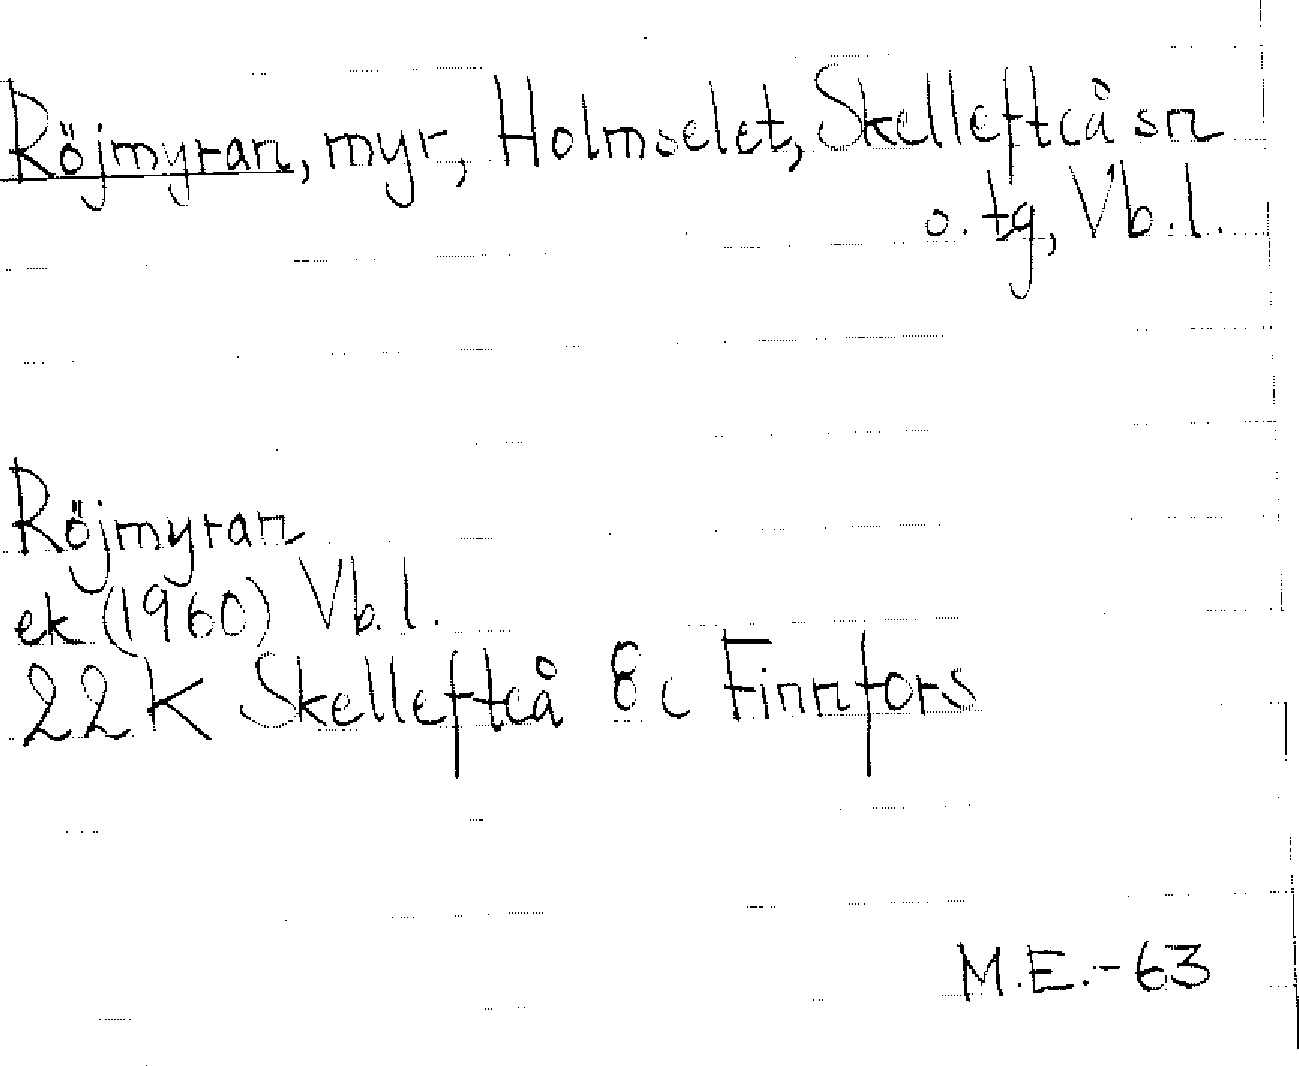 Röjmyran, myr, Holmselet, Skellefteå sn
o. tg, Vb. l.
Röjmyran
ek (1960) Vb. l.
22 K Skellefteå 8 c Finnfors
M.E.-63